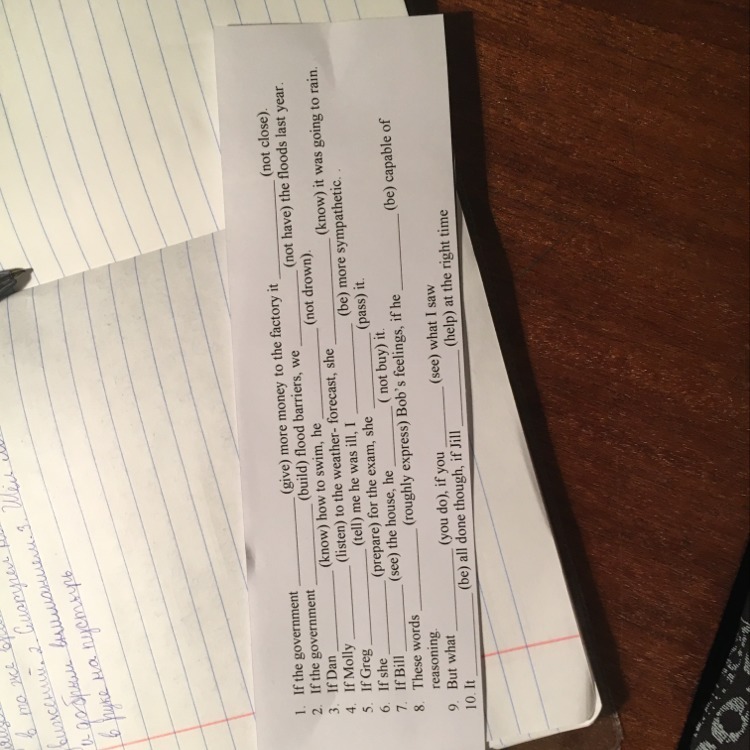 в то же время
2
3
а добрым вниманием
в руке на пустырь
1. If the government ________ (give) more money to the factory it ________ (not close).
2. If the government ________ (build) flood barriers, we ________ (not have) the floods last year.
3. If Dan ________ (know) how to swim, he ________ (not drown).
4. If Molly ________ (listen) to the weather- forecast, she ________ (know) it was going to rain.
5. If Greg ________ (tell) me he was ill, I ________ (be) more sympathetic. .
6. If she ________ (prepare) for the exam, she ________ (pass) it.
7. If Bill ________ (see) the house, he ________ ( not buy) it.
8. These words ________ (roughly express) Bob's feelings, if he ________ (be) capable of
reasoning.
9. But what ________ (you do), if you ________ (see) what I saw
10. It ________ (be) all done though, if Jill ________ (help) at the right time